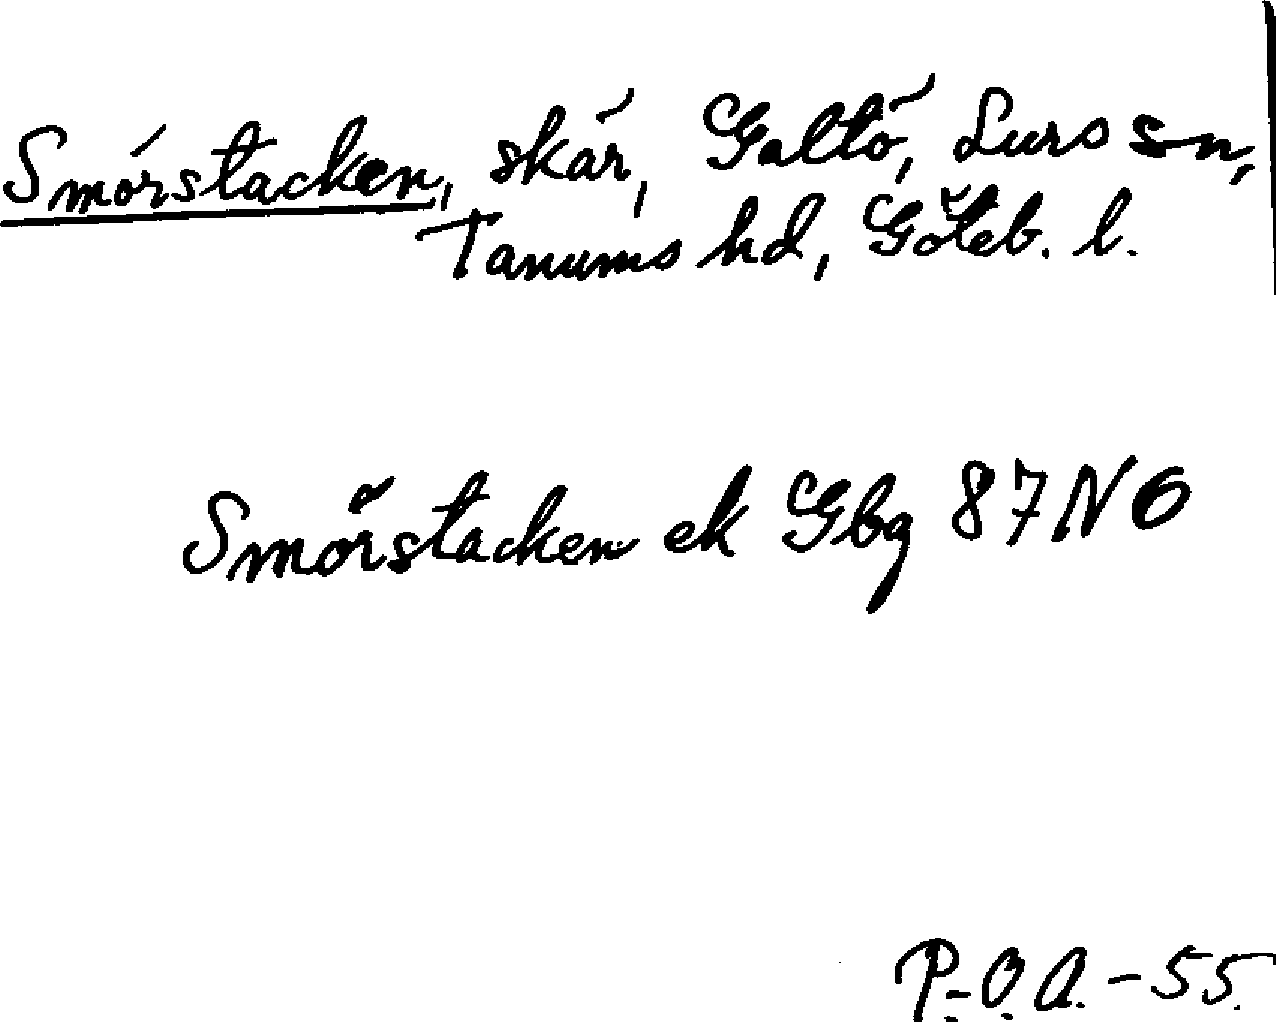 Smörstacken, skär, Galtö, Lurs sn,
Tanums hd, Göteb. l.
Smörstacken ek Gbg 87 NO
P.-O.A. -55.